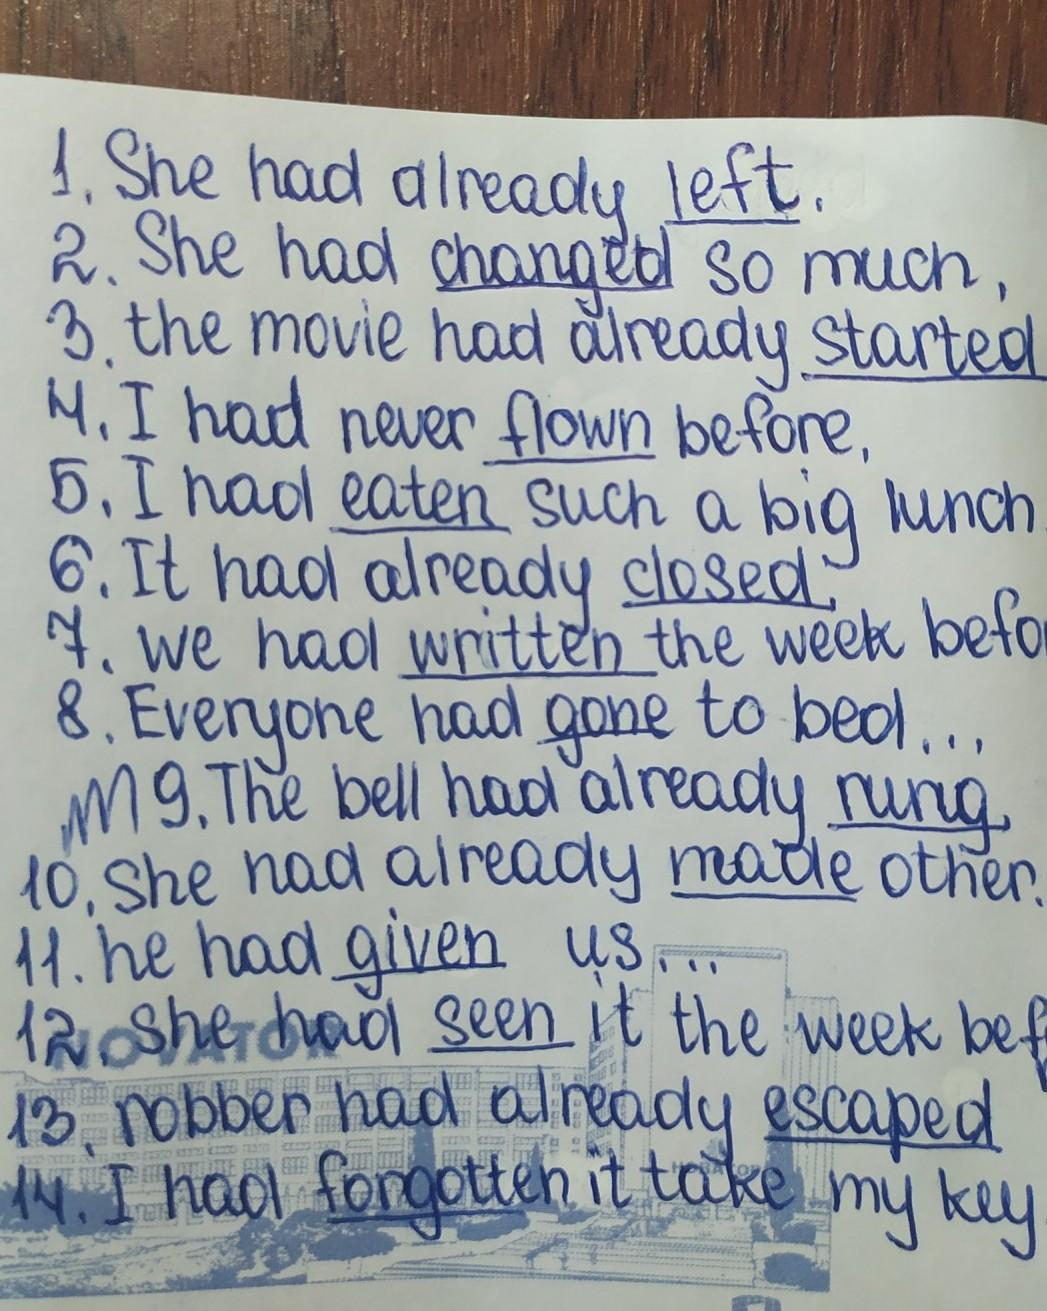 1. She had already left.
2. She had changed so much,
3. the movie had already started
4. I had never flown before,
5. I had eaten such a big lunch
6. It had already closed.
7. we had written the week befor
8. Everyone had gone to bed...
9. The bell had already rung
10. She had already made other.
11. he had given us...
12. she had seen it the week bef
NOVATOR
13. robber had already escaped
14. I had forgotten it take my key